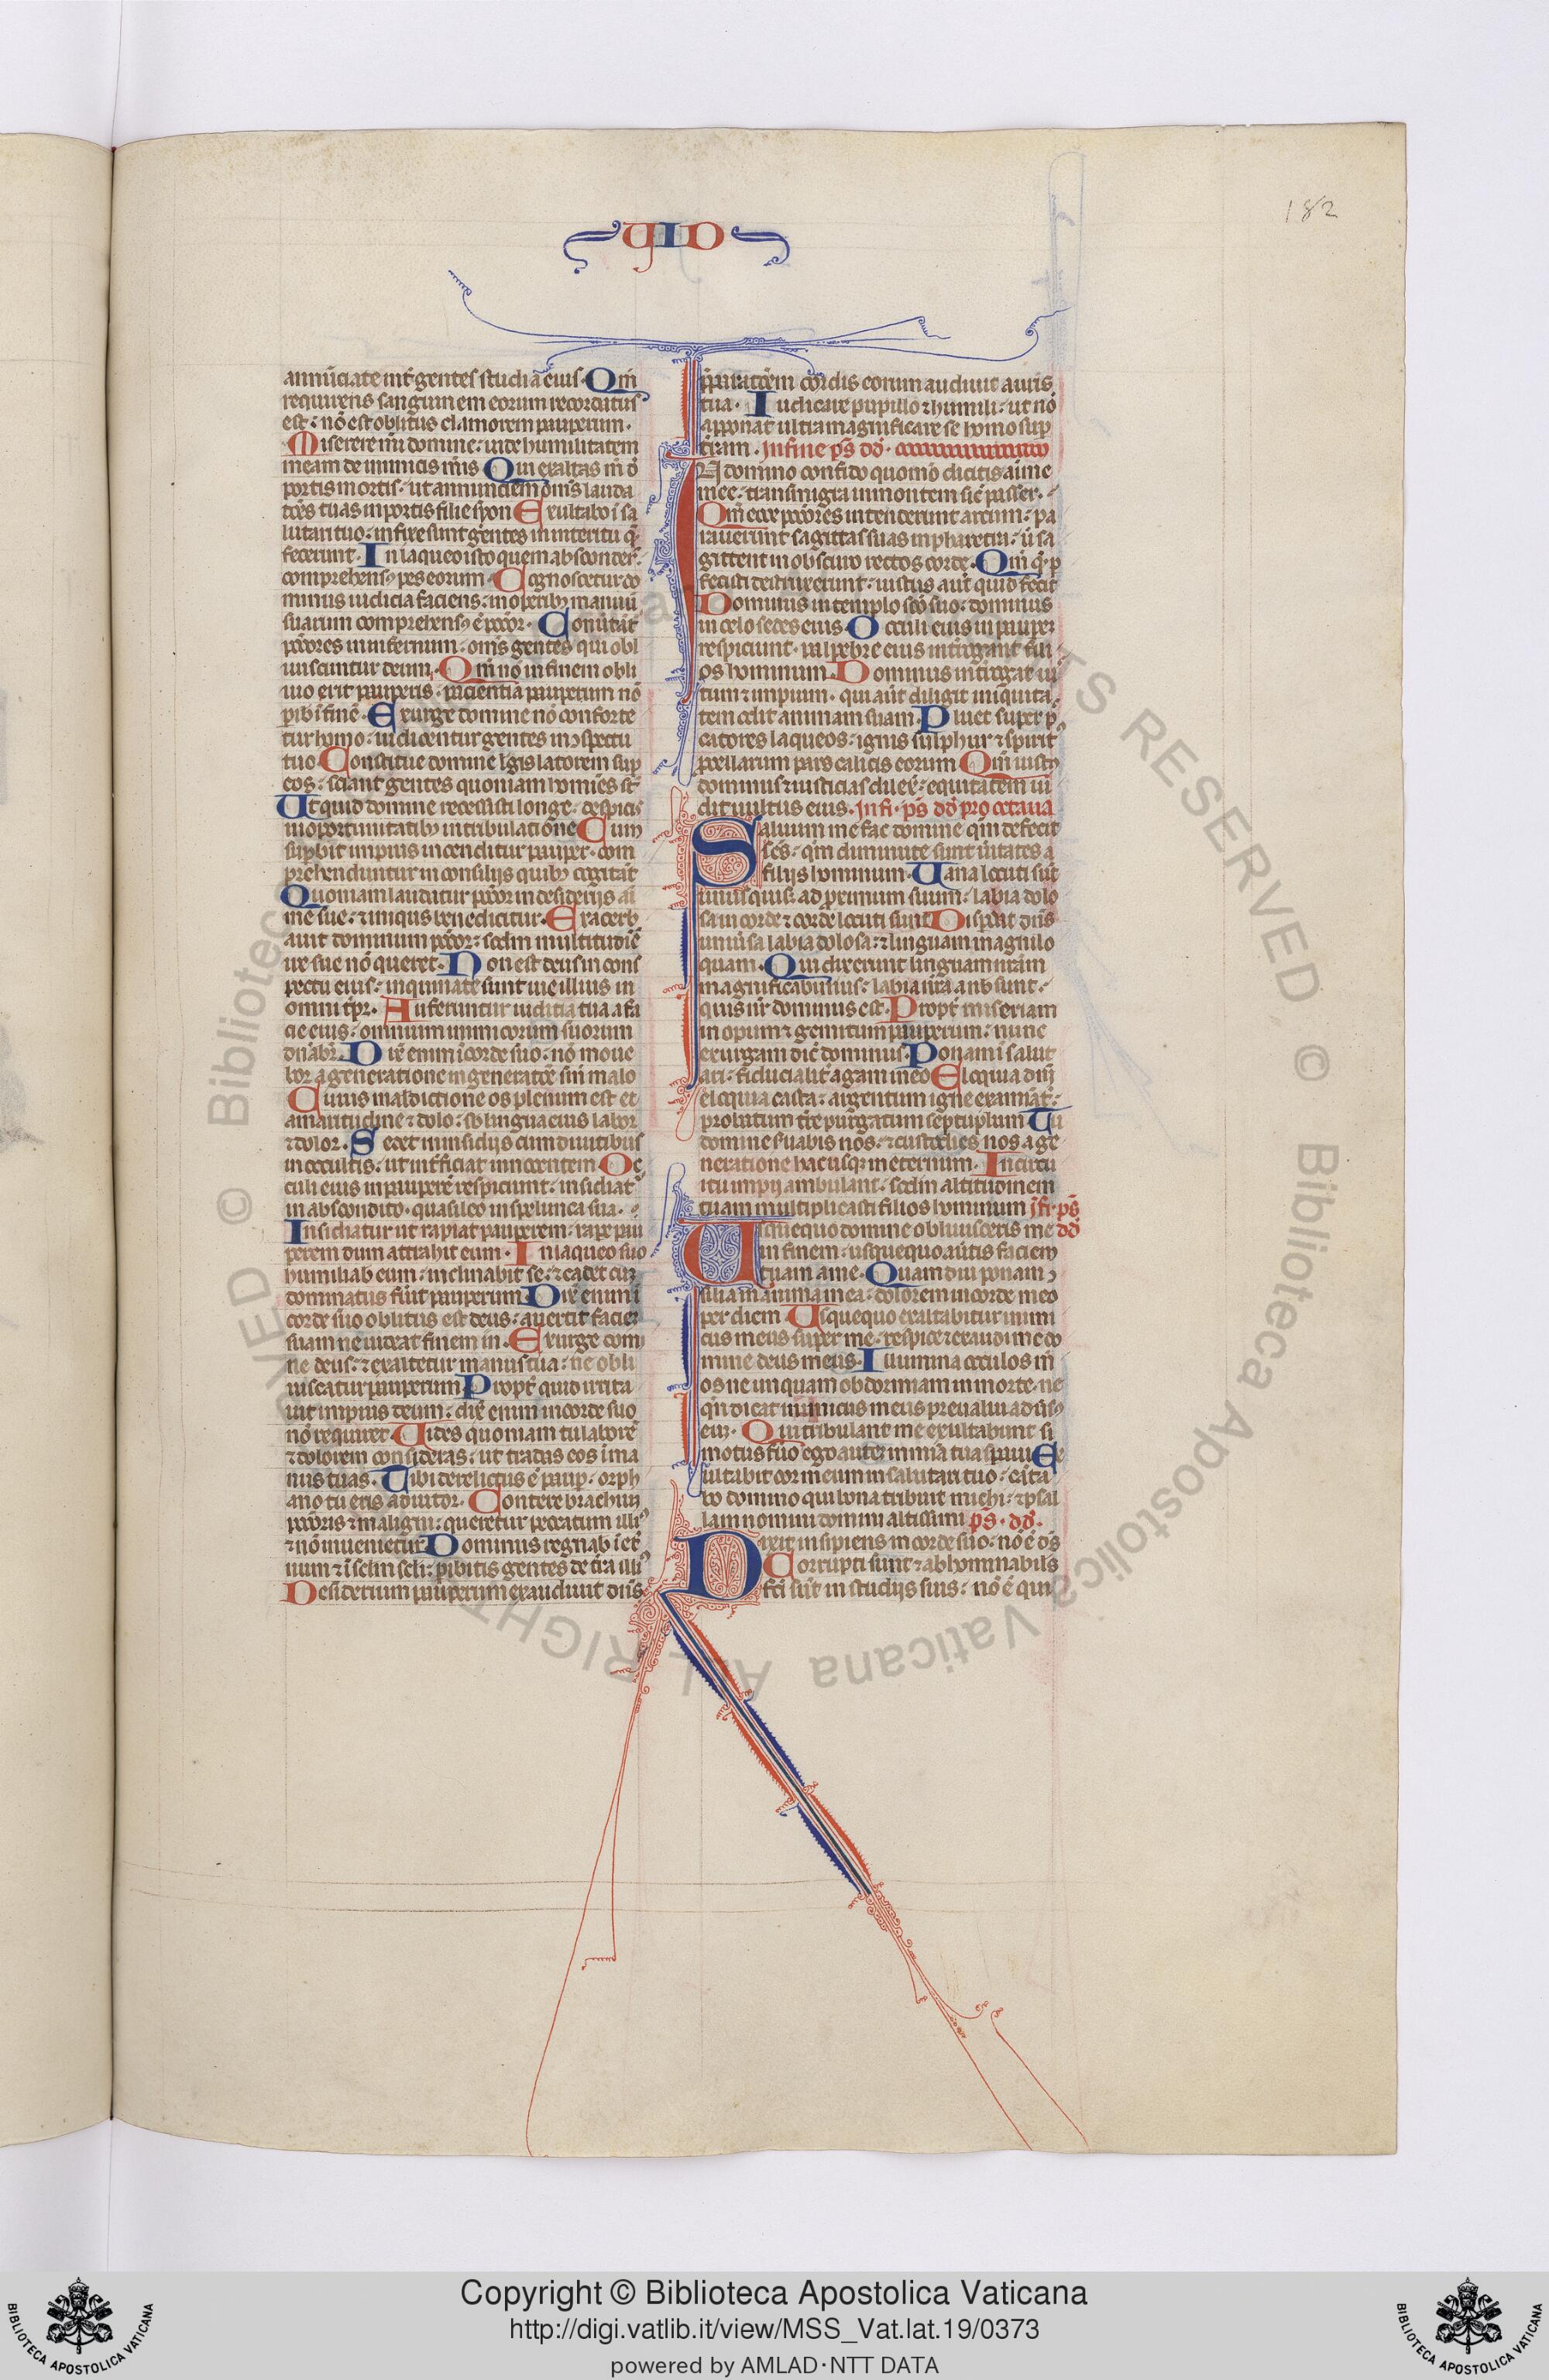 182
annūciate int̄ gentes studia eius. Qm̄
requirens sanguinem eorum recordatus
est: nō est oblitus clamorem pauperum.
Miserere mī domine: uide humilitatem
meam de inimicis mīs Qui exaltas m̄ d̄
portis mortis. ut annunciem om̄s lauda
tōes tuas in portis filie syon Exultabo ī sa
lutari tuo: infixe sunt gentes in interitu q̄
fecerunt. In laqueo isto quem absconder̄
comprehensꝰ pes eorum. Cognoscetur do
minus iudicia faciens: in operibꝫ manuū
suarum comprehensꝰ ē pcc̄or. Conūtāt
pcc̄ores in infernum. om̄s gentes qui obl
iuiscuntur deum. Qm̄ nō in finem obli
uio erit pauperis. pacientia pauperum nō
pibit ī finē. Exurge domine nō conforte
tur homo: iudicentur gentes in ɔspectu
tuo. Constitue domine legislatorem sup
eos: sciant gentes quoniam homīes st̄
Ut quid domine recessisti longe: despicis
in oportunitatibꝫ in tribulatione Cum
supbit impius incenditur pauper. com
prehenduntur in consilijs quibꝫ cogitāt
Quoniam laudatur pcc̄or in desiderijs ai
me sue: ⁊ iniqus benedicitur. Exacerb
auit dominum pcc̄or: sc̄dm multitudiē
ire sue nō queret. Non est deus in cons
pectu eius: inquinate sunt uie illius in
omni tp̄r. Auferuntur iudicia tua a fa
cie eius: omnium inimicorum suorum
dn̄abr̄. Dix̄ enim ī corde suo: nō moue
bor a generatione in generatōe sin̄ malo
Cuius maldictione os plenum est et
amaritudine ⁊ dolo: sb lingua eius labor
⁊ dolor. Sedet in insidijs cum diuitibus
in occultis: ut int̄ficiat innocentem Oc
culi eius in pauperē respiciunt: insidiat̄
in abscondito. quasi leo in spelunca sua.
Insidiatur ut rapiat pauperem: rape pau
perem dum attrahit eum. In laqueo suo
humiliab eum: inclinabit se: ⁊ cadet cū
dominatus fūit pauperum Dix̄ enim ī
corde suo oblitus est deus: auertit faciē
suam ne uideat finem in. Exurge domi
ne deus: ⁊ exaltetur manus tua: ne obli
uiscatur pauperum Propt̄ quid irrita
uit impius deum: dix̄ enim in corde suo
nō requiret. Uides quoniam tu laborē
⁊ dolorem consideras: ut tradas eos ī ma
nus tuas. Tibi derelictus ē paup: orph
ano tu eris adiutor. Contere brachiū
pcc̄oris ⁊ maligni: queretur peccatum illiꝰ
⁊ nō inuenietur. Dominus regnab ī et̄
num ⁊ ī sclm̄ scli: pibitis gentes de tr̄a illiꝰ
Desiderium pauperum exaudiuit dn̄s
p̄paratōem cordis eorum audiuit auris
tua. Iudicare pupillo ⁊ humili: ut nō
apponat ultra magnificare se homo sup
tr̄am. In fine ps̄ dd̄.
In domino confido quomō dicitis aīme
mee: transmigra in montem sic̄ passer.
Qm̄ ecce pcc̄ores intenderunt arcum: pa
rauerunt sagittas suas in pharetra: ū sa
gittent in obscuro rectos corde. Qm̄ q̄ p
fecisti destruxerunt: iustus aut̄ quid fecit
Dominus in templo sc̄o suo: dominus
in celo sedes eius. Occuli eius in pauper̄
respiciunt. palpebre eius int̄rogant fili
os hominum. Dominus int̄rogat iu
stum ⁊ impium. qui aūt diligit iniquita
tem odit animam suam. Pluet super p̄
catores laqueos: ignis sulphur ⁊ spiritꝰ
pcellarum pars calicis eorum Qm̄ iustꝰ
dominus ⁊ iusticias dilex̄: equitatem ui
dit uultus eius. In fi. ps̄ dd̄ pro octaua
Saluum me fac domine qm̄ defecit
sc̄s: qm̄ diminute sunt ūitates a
filijs hominum. Uana locuti sūt
unusquisꝫ ad proximum suum: labia dolo
sa in corde ⁊ corde locuti sunt Disp̄dat dn̄s
uniūsa labia dolosa: ⁊ linguam magnilo
quam. Qui dixerunt linguam nr̄am
magnificabimus: labia nr̄a a nb̄ sunt.
quis nr̄ dominus est. Propt̄ miseriam
inopum ⁊ gemitum pauperum: nunc
exurgam dic̄ dominus. Ponam ī salut
ari: fiducialit̄ agam in eo Eloquia dn̄i
eloquia casta: argentum igne examīat̄:
probatum tr̄e purgatum septuplum Tu
domine suabis nos: ⁊ custodies nos a ge
neratione hac usqꝫ in eternum. In circu
itu impij ambulant: sc̄dm altitudinem
tuam multiplicasti filios hominum I fi. ps̄
Usquequo domine obliuisceris me dd̄
in finem: usquequo aūtis faciem
tuam a me. Quam diu ponam ɔ
silia in anima mea: dolorem in corde meo
per diem. Usquequo exaltabitur inimi
cus meus super me: respice ⁊ exaudi me do
mine deus meus. Illumina occulos m̄
os ne unquam obdormiam in morte. ne
qn̄ dicat inimicus meus preualui aduīsꝰ
eū. Qui tribulant me exultabunt si
motus fūo ego autē in mīa tua spaui Ex
ultabit cor meum in salutari tuo: cāta
bo domino qui bona tribuit michi: ⁊ psal
lam nomini domini altissimi ps̄. dd̄.
Dixit insipiens in corde suo: nō ē ds̄
Corrupti sunt ⁊ abhominabil̄s
fc̄i sūt in studijs suis: nō ē qui
© Biblioteca Apostolica Vaticana ALL RIGHTS RESERVED
Copyright © Biblioteca Apostolica Vaticana
http://digi.vatlib.it/view/MSS_Vat.lat.19/0373
powered by AMLAD·NTT DATA
BIBLIOTECA APOSTOLICA VATICANA
BIBLIOTECA APOSTOLICA VATICANA